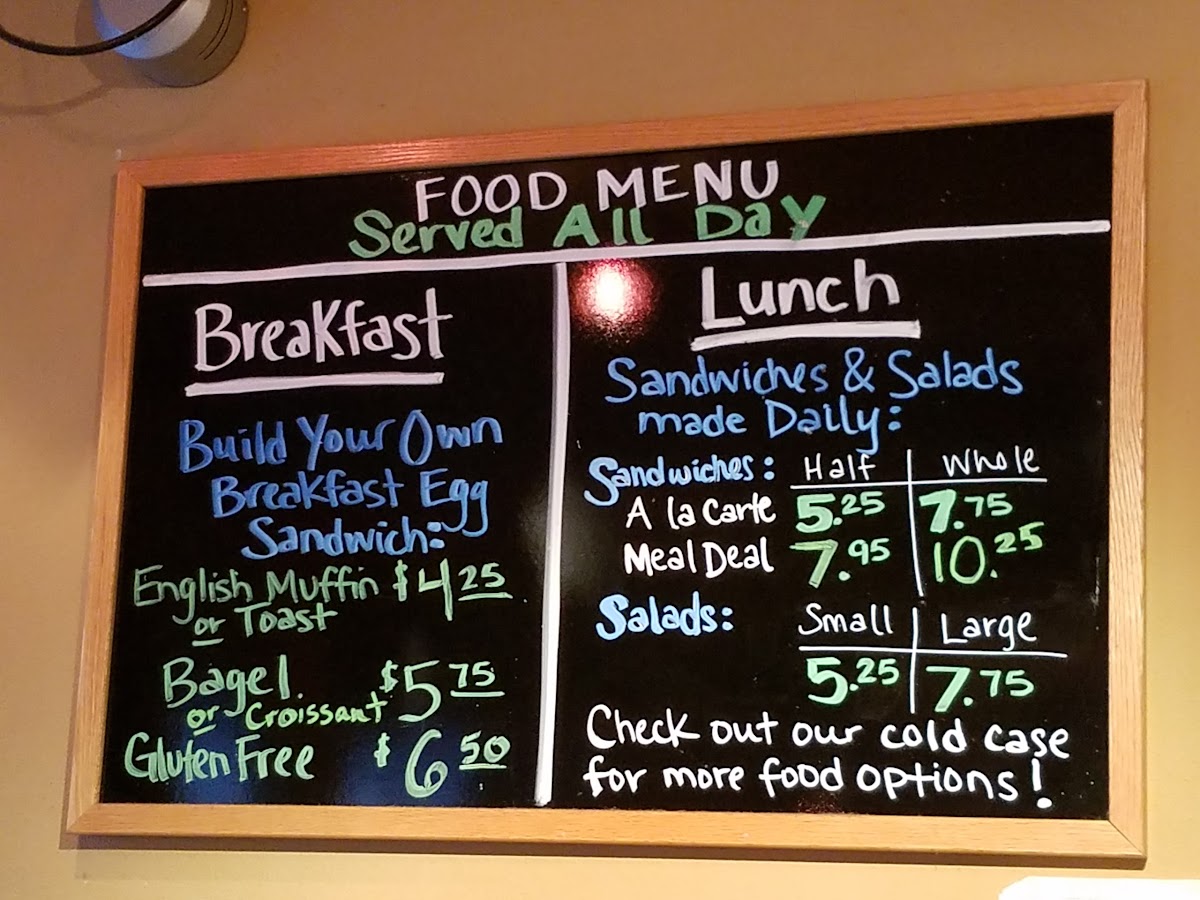 FOOD MENU
Served All Day
Breakfast
Build Your Own
Breakfast Egg
Sandwich:
English Muffin $4 25
or Toast
Bagel $5 75
or Croissant
Gluten Free $6 50
Lunch
Sandwiches & Salads
made Daily:
Sandwiches: Half Whole
A la Carte 5.25 7.75
Meal Deal 7.95 10.25
Salads: Small Large
5.25 7.75
Check out our cold case
for more food options!